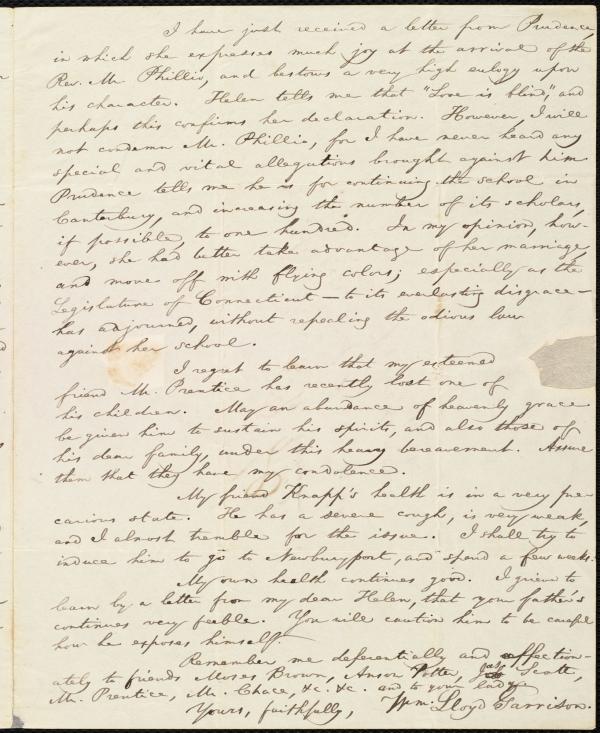 I have just received a letter from Prudence,
in which she expresses much joy at the arrival of the
Rev. Mr Phillio, and bestows a very high eulogy upon
his character. Helen tells me that "Love is blind", and
perhaps this confirms her declaration. However, I will
not condemn Mr. Phillio, for I have never heard any
special and vital allegations brought against him.
Prudence tells me he is for continuing the school in
Canterbury, and increasing the number of its scholars,
if possible, to one hundred. In my opinion, how-
ever, she had better take advantage of her marriage,
and move off with flying colors; especially as the
Legislature of Connecticut — to its everlasting disgrace —
has adjourned, without repealing the odious law
against her school.
I regret to learn that my esteemed
friend Mr. Prentice has recently lost one of
his children. May an abundance of heavenly grace
be given him to sustain his spirits, and also those of
his dear family, under this heavy bereavement. Assure
them that they have my condolence.
My friend Knapp's health is in a very pre-
carious state. He has a severe cough, is very weak,
and I almost tremble for the issue. I shall try to
induce him to go to Newburyport, and spend a few weeks.
My own health continues good. I grieve to
learn by a letter from my dear Helen, that your father's
continues very feeble. You will caution him to be careful
how he exposes himself.
Remember me deferentially and affection-
ately to friends Moses Brown, Anson Potter, Scott,
Mr. Prentice, Mr. Chace, &c. &c. and to your lady
Yours, faithfully, Wm. Lloyd Garrison.